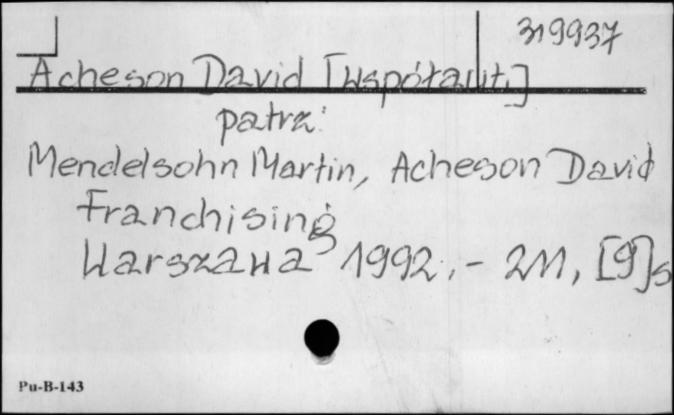 319937
Acheson David [współaut.]
patrz:
Mendelsohn Martin, Acheson David
Franchising
Warszawa 1992.- 211, [9]s
Pu-B-143